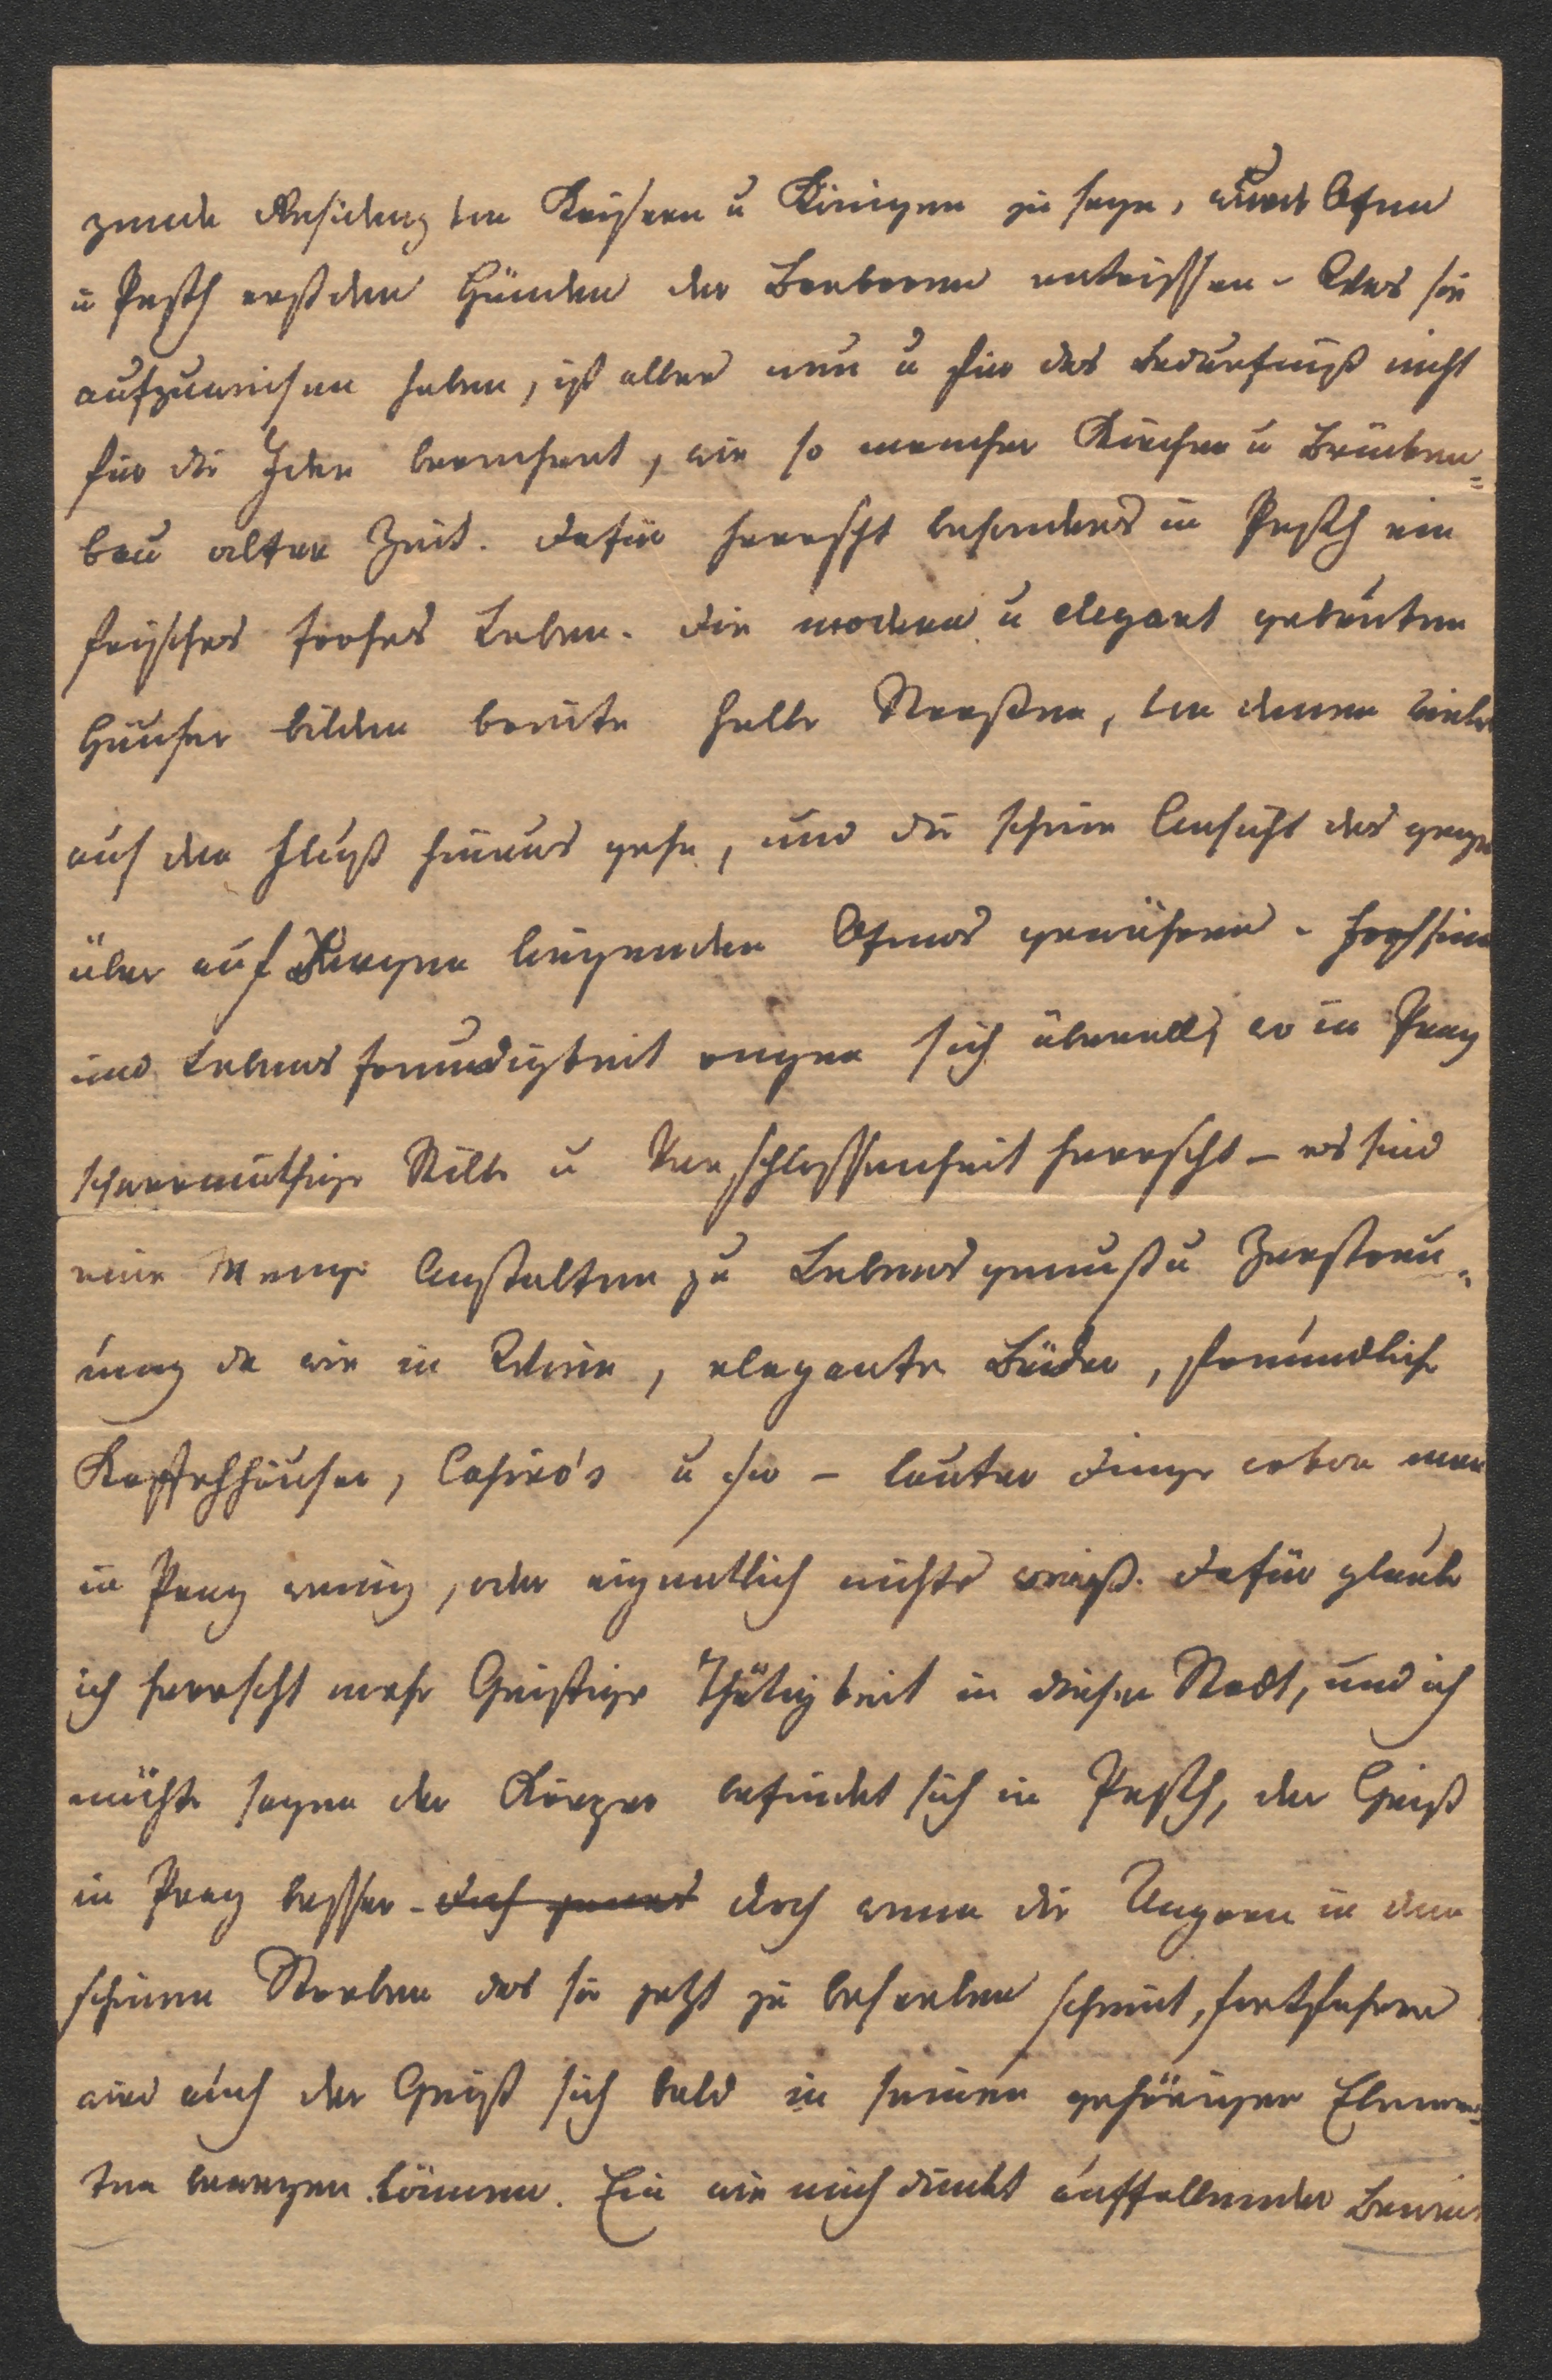 zende Residenz von Kaisern u Königen zu seyn, wurde Ofen
u Pesth erst den Händen der Barbaren entrissen. Was sie
aufzuweisen haben, ist alles neu u für das Bedürfniß nicht
für die Idee berechnet, wie so mancher Kirchen u Brücken=
bau alter Zeit. Dafür herrscht besonders in Pesth ein
frisches frohes Leben. Die modern u elegant gebauten
Häuser bilden breite helle Straßen, von denen viele
auf den Fluß hinaus gehn, und die schöne Ansicht des gegen
über auf Bergen liegenden Ofens gewähren. Frohsinn
und Lebensfreudigkeit regen sich überall, wo in Prag
schwermüthige Stille u Verschlossenheit herrscht – es sind
eine Menge Anstalten zu Lebensgenuß u Zerstreu=
ung da wie in Wien, elegante Bäder, freundliche
Kaffehhäuser, Casino's u so – lauter Dinge wovon man
in Prag wenig, oder eigentlich nichts weiß. Dafür glaub
ich herrscht mehr Geistige Thätigkeit in dieser Stadt, und ich
möchte sagen der Körper befindet sich in Pesth, der Geist
in Prag besser. doch wenn die Ungarn in dem
schönen Streben das sie jetzt zu beseelen scheint, fortfahren
wird auch der Geist sich bald in seinen gehörigen Elemen=
ten bewegen können. Ein wie mich dünkt auffallender Beweis